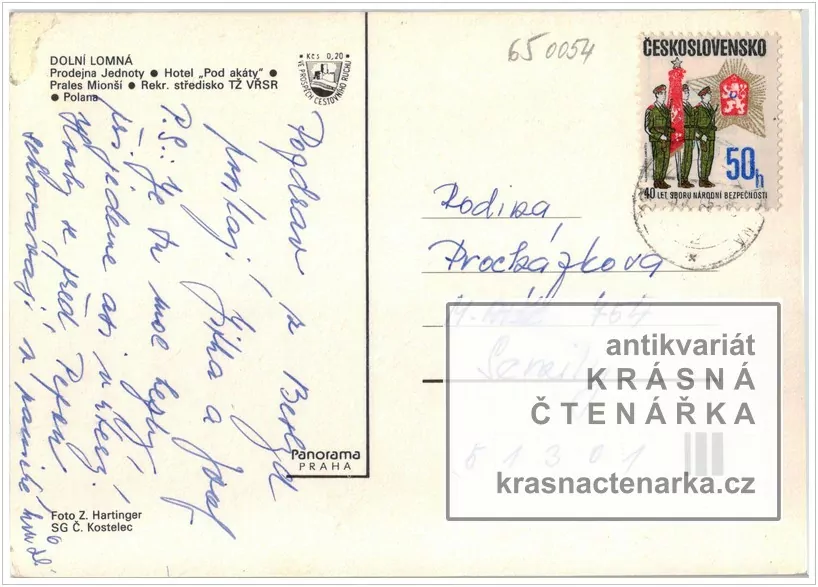 DOLNÍ LOMNÁ
Prodejna Jednoty ● Hotel „Pod akáty" ●
Prales Mionší ● Rekr. středisko TŽ VŘSR
● Polana
• Kčs 0,20 •
VE PROSPĚCH CESTOVNÍHO RUCHU
650054
ČESKOSLOVENSKO
50h
40 LET SBORU NÁRODNÍ BEZPEČNOSTI
Pozdrav z Beskyd
posílají Jitka a Josef
P.S.: Je tu moc
přijedeme
Houby se před Pepou
schovávají
Rodina
Procházkova
764
Semily
51301
Panorama
PRAHA
Foto Z. Hartinger
SG Č. Kostelec
antikvariát
KRÁSNÁ
ČTENÁŘKA
krasnactenarka.cz